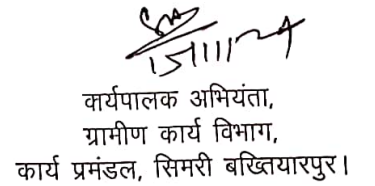 कार्यपालक अभियंता,
ग्रामीण कार्य विभाग,
कार्य प्रमंडल, सिमरी बख्तियारपुर।